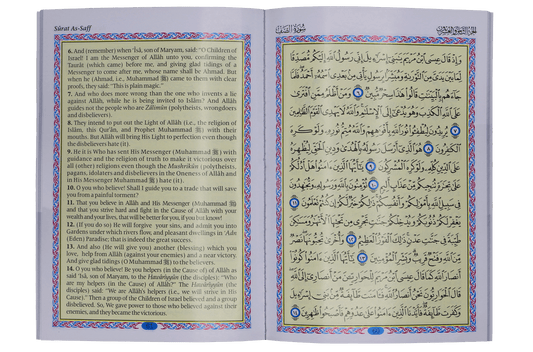 Sûrat As-Saff
6. And (remember) when 'Îsâ, son of Maryam, said: "O Children of
Israel! I am the Messenger of Allâh unto you, confirming the
Taurât (which came) before me, and giving glad tidings of a
Messenger to come after me, whose name shall be Ahmad. But
when he (Ahmad, i.e., Muhammad ﷺ) came to them with clear
proofs, they said: "This is plain magic."
7. And who does more wrong than the one who invents a lie
against Allâh, while he is being invited to Islâm? And Allâh
guides not the people who are Zâlimûn (polytheists, wrongdoers
and disbelievers).
8. They intend to put out the Light of Allâh (i.e., the religion of
Islâm, this Qur'ân, and Prophet Muhammad ﷺ) with their
mouths. But Allâh will bring His Light to perfection even though
the disbelievers hate (it).
9. He it is Who has sent His Messenger (Muhammad ﷺ) with
guidance and the religion of truth to make it victorious over
all (other) religions even though the Mushrikûn (polytheists,
pagans, idolaters and disbelievers in the Oneness of Allâh and
in His Messenger Muhammad ﷺ) hate (it).
10. O you who believe! Shall I guide you to a trade that will save
you from a painful torment?
11. That you believe in Allâh and His Messenger (Muhammad ﷺ)
and that you strive hard and fight in the Cause of Allâh with your
wealth and your lives, that will be better for you, if you but know!
12. (If you do so) He will forgive your sins, and admit you into
Gardens under which rivers flow, and pleasant dwellings in 'Adn
(Eden) Paradise; that is indeed the great success.
13. And also (He will give you) another (blessing) which you
love, help from Allâh (against your enemies) and a near victory.
And give glad tidings (O Muhammad ﷺ) to the believers.
14. O you who believe! Be you helpers (in the Cause of) Allâh as
said 'Îsâ, son of Maryam, to the Hawâriyyûn (the disciples): "Who
are my helpers (in the Cause) of Allâh?" The Hawâriyyûn (the
disciples) said: "We are Allâh's helpers (i.e., we will strive in His
Cause)." Then a group of the Children of Israel believed and a group
disbelieved. So, We gave power to those who believed against their
enemies, and they became the victorious.
سورة الصف
وإذ قال عيسى ابن مريم يبني إسرءيل إني رسول الله إليكم مصدقا
لما بين يدي من التورىة ومبشرا برسول يأتي من بعدي اسمه أحمد فلما
جاءهم بالبينت قالوا هذا سحر مبين ٦ ومن أظلم ممن افترى
على الله الكذب وهو يدعى إلى الإسلم والله لا يهدي القوم الظلمين
٧ يريدون ليطفئوا نور الله بأفوههم والله متم نوره ولو كره
الكفرون ٨ هو الذي أرسل رسوله بالهدى ودين الحق ليظهره
على الدين كله ولو كره المشركون ٩ يأيها الذين ءامنوا هل أدلكم
على تجرة تنجيكم من عذاب أليم ١٠ تؤمنون بالله ورسوله وتجهدون
في سبيل الله بأمولكم وأنفسكم ذلكم خير لكم إن كنتم تعلمون ١١
يغفر لكم ذنوبكم ويدخلكم جنت تجري من تحتها الأنهر ومسكن
طيبة في جنت عدن ذلك الفوز العظيم ١٢ وأخرى تحبونها نصر
من الله وفتح قريب وبشر المؤمنين ١٣ يأيها الذين ءامنوا كونوا
أنصار الله كما قال عيسى ابن مريم للحوارين من أنصاري إلى الله
قال الحواريون نحن أنصار الله فءامنت طائفة من بني إسرءيل
وكفرت طائفة فأيدنا الذين ءامنوا على عدوهم فأصبحوا ظهرين ١٤